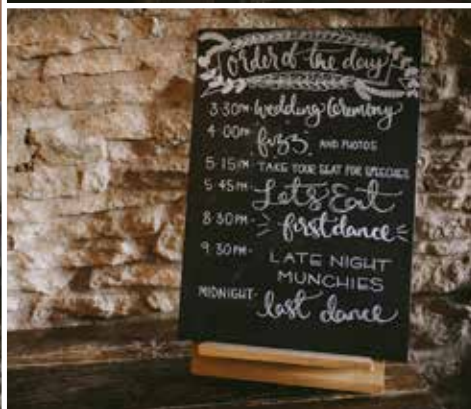 order of the day
3:30PM- Wedding Ceremony
4:00PM- fizz AND PHOTOS
5:15PM- TAKE YOUR SEAT FOR SPEECHES
5:45PM- Let's Eat
8:30PM- first dance
9:30PM- LATE NIGHT
MUNCHIES
MIDNIGHT- last dance